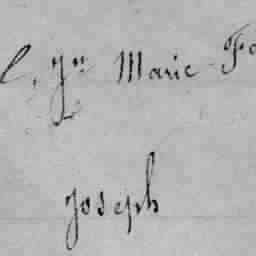 Jn Marie
Joseph